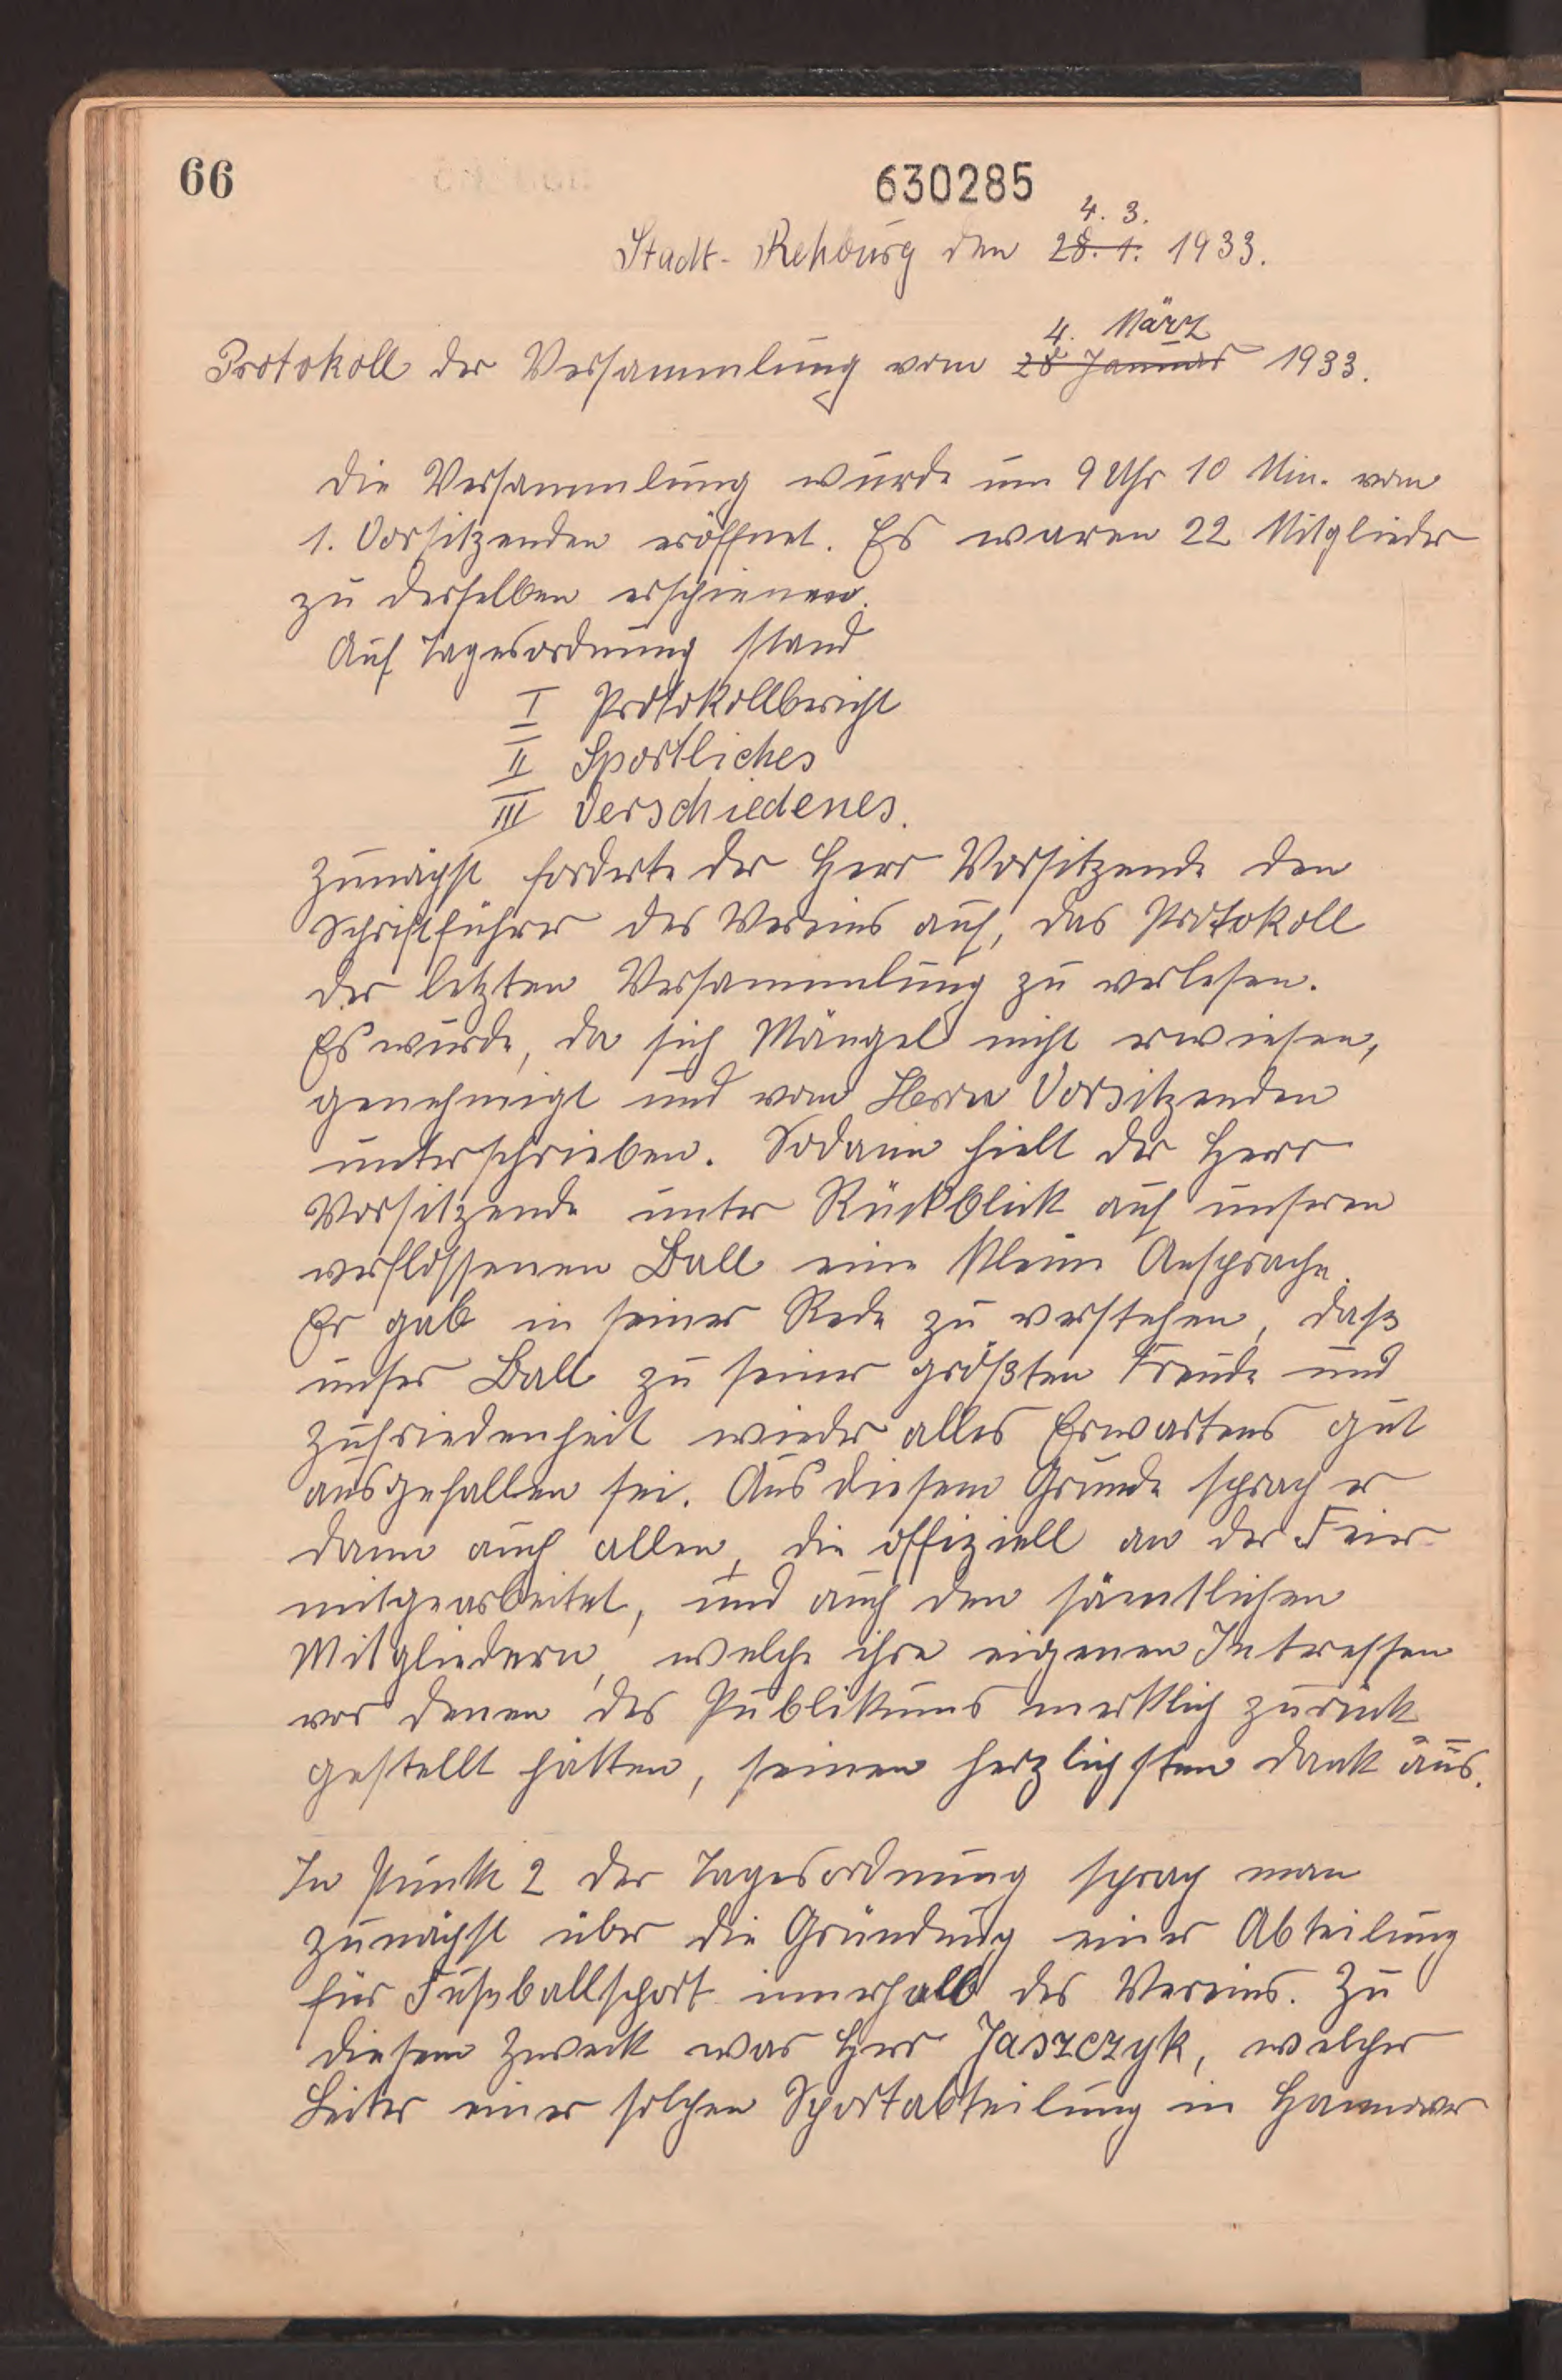 66
630285
4. 3.
Stadt-Rehburg den 28. 1. 1933.
4. März
Protokoll der Versammlung vom 28 Januar 1933.
Die Versammlung wurde um 9 Uhr 10 Min. vom
1. Vorsitzenden eröffnet. Es waren 22 Mitglieder
zu derselben erschienen.
Auf Tagesordnung stand
I Protokollbericht
II Sportliches
III Verschiedenes.
Zunächst forderte der Herr Vorsitzende den
Schriftführer des Vereins auf, das Protokoll
der letzten Versammlung zu verlesen.
Es wurde, da sich Mängel nicht erwiesen,
genehmigt und vom Herrn Vorsitzenden
unterschrieben. Sodann hielt der Herr
Vorsitzende unter Rückblick auf unseren
verflossenen Ball eine kleine Ansprache.
Er gab in seiner Rede zu verstehen, daß
unser Ball zu seiner größten Freude und
Zufriedenheit wieder alles Erwartens gut
ausgefallen sei. Aus diesem Grunde sprach er
dann auch allen, die offiziell an der Feier
mitgearbeitet, und auch den sämtlichen
Mitgliedern, welche ihre eigenen Intressen
vor denen des Publikums merklich zurück
gestellt hätten, seinen herzlichsten Dank aus.
In Punkt 2 der Tagesordnung sprach man
zunächst über die Gründung einer Abteilung
für Fußballsport innerhalb des Vereins. Zu
diesem Zweck war Herr Jaszczyk, welcher
Leiter einer solchen Sportabteilung in Hannover